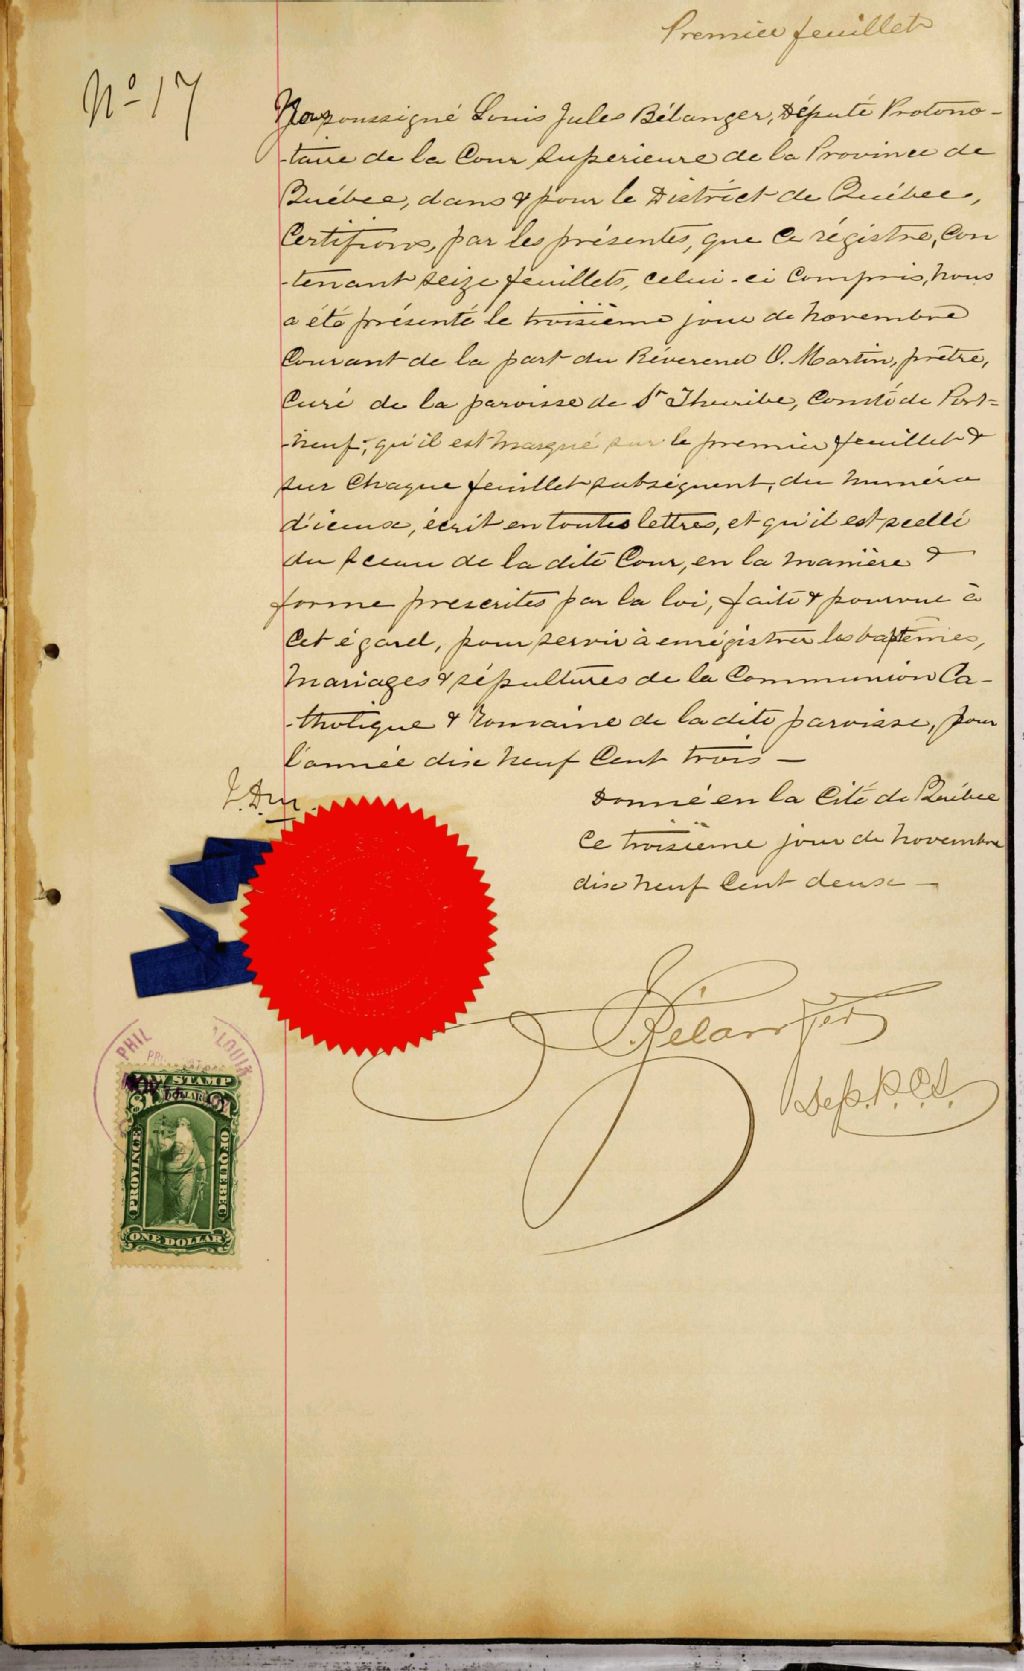 Premier feuillet
No 17
Nous soussigné Louis Jules Bélanger, Député Protono-
-taire de la Cour Supérieure de la Province de
Québec, dans & pour le District de Québec,
Certifions, par les présentes, que ce régistre, con
-tenant seize feuillets, celui-ci compris, nous
a été présenté le troisième jour de novembre
Courant de la part du Révérend O. Martin, prêtre,
Curé de la paroisse de St Thuribe, Comté de Port=
-neuf; qu'il est marqué sur le premier feuillet &
sur chaque feuillet subséquent, du numéro
d'iceux, écrit en toutes lettres, et qu'il est scellé
du sceau de la dite Cour, en la manière &
forme prescrites par la loi, faite & pourvue à
cet égard, pour servir à enrégistrer les baptêmes,
Mariages & sépultures de la Communion Ca-
-tholique & romaine de la dite paroisse, pour
l'année dix neuf Cent trois —
Donné en la Cité de Québec
Ce troisième jour de Novembre
dix neuf Cent deux —
L. J. Bélanger
Dep. P.C.S.
PHIL
LOUIR
LAW STAMP
$1
DOLLAR
PROVINCE
OF QUEBEC
ONE DOLLAR